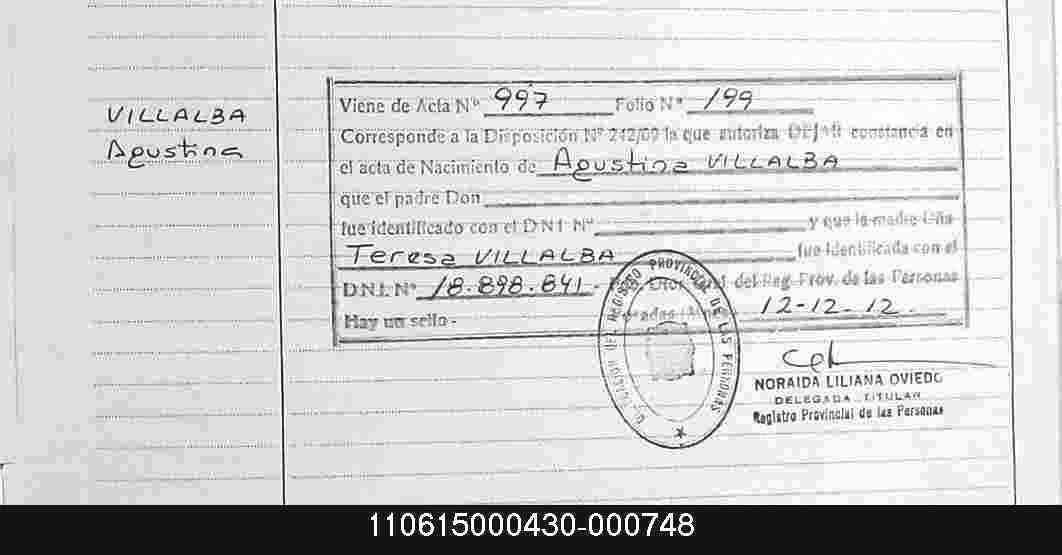 VILLALBA
Agustina
Viene de Acta Nº 997 Folio Nº 199
Corresponde a la Disposición Nº 242/09 la que autoriza DEJAR constancia en
el acta de Nacimiento de Agustina VILLALBA
que el padre Don
fue identificado con el DNI Nº y que la madre Dña
Teresa VILLALBA fue identificada con el
D.N.I. Nº 18.898.841.- Gral. del Reg. Prov. de las Personas
Hay un sello.- Posadas 12-12-12.
REGISTRO PROVINCIAL DE LAS PERSONAS
NORAIDA LILIANA OVIEDO
DELEGADA TITULAR
Registro Provincial de las Personas
110615000430-000748